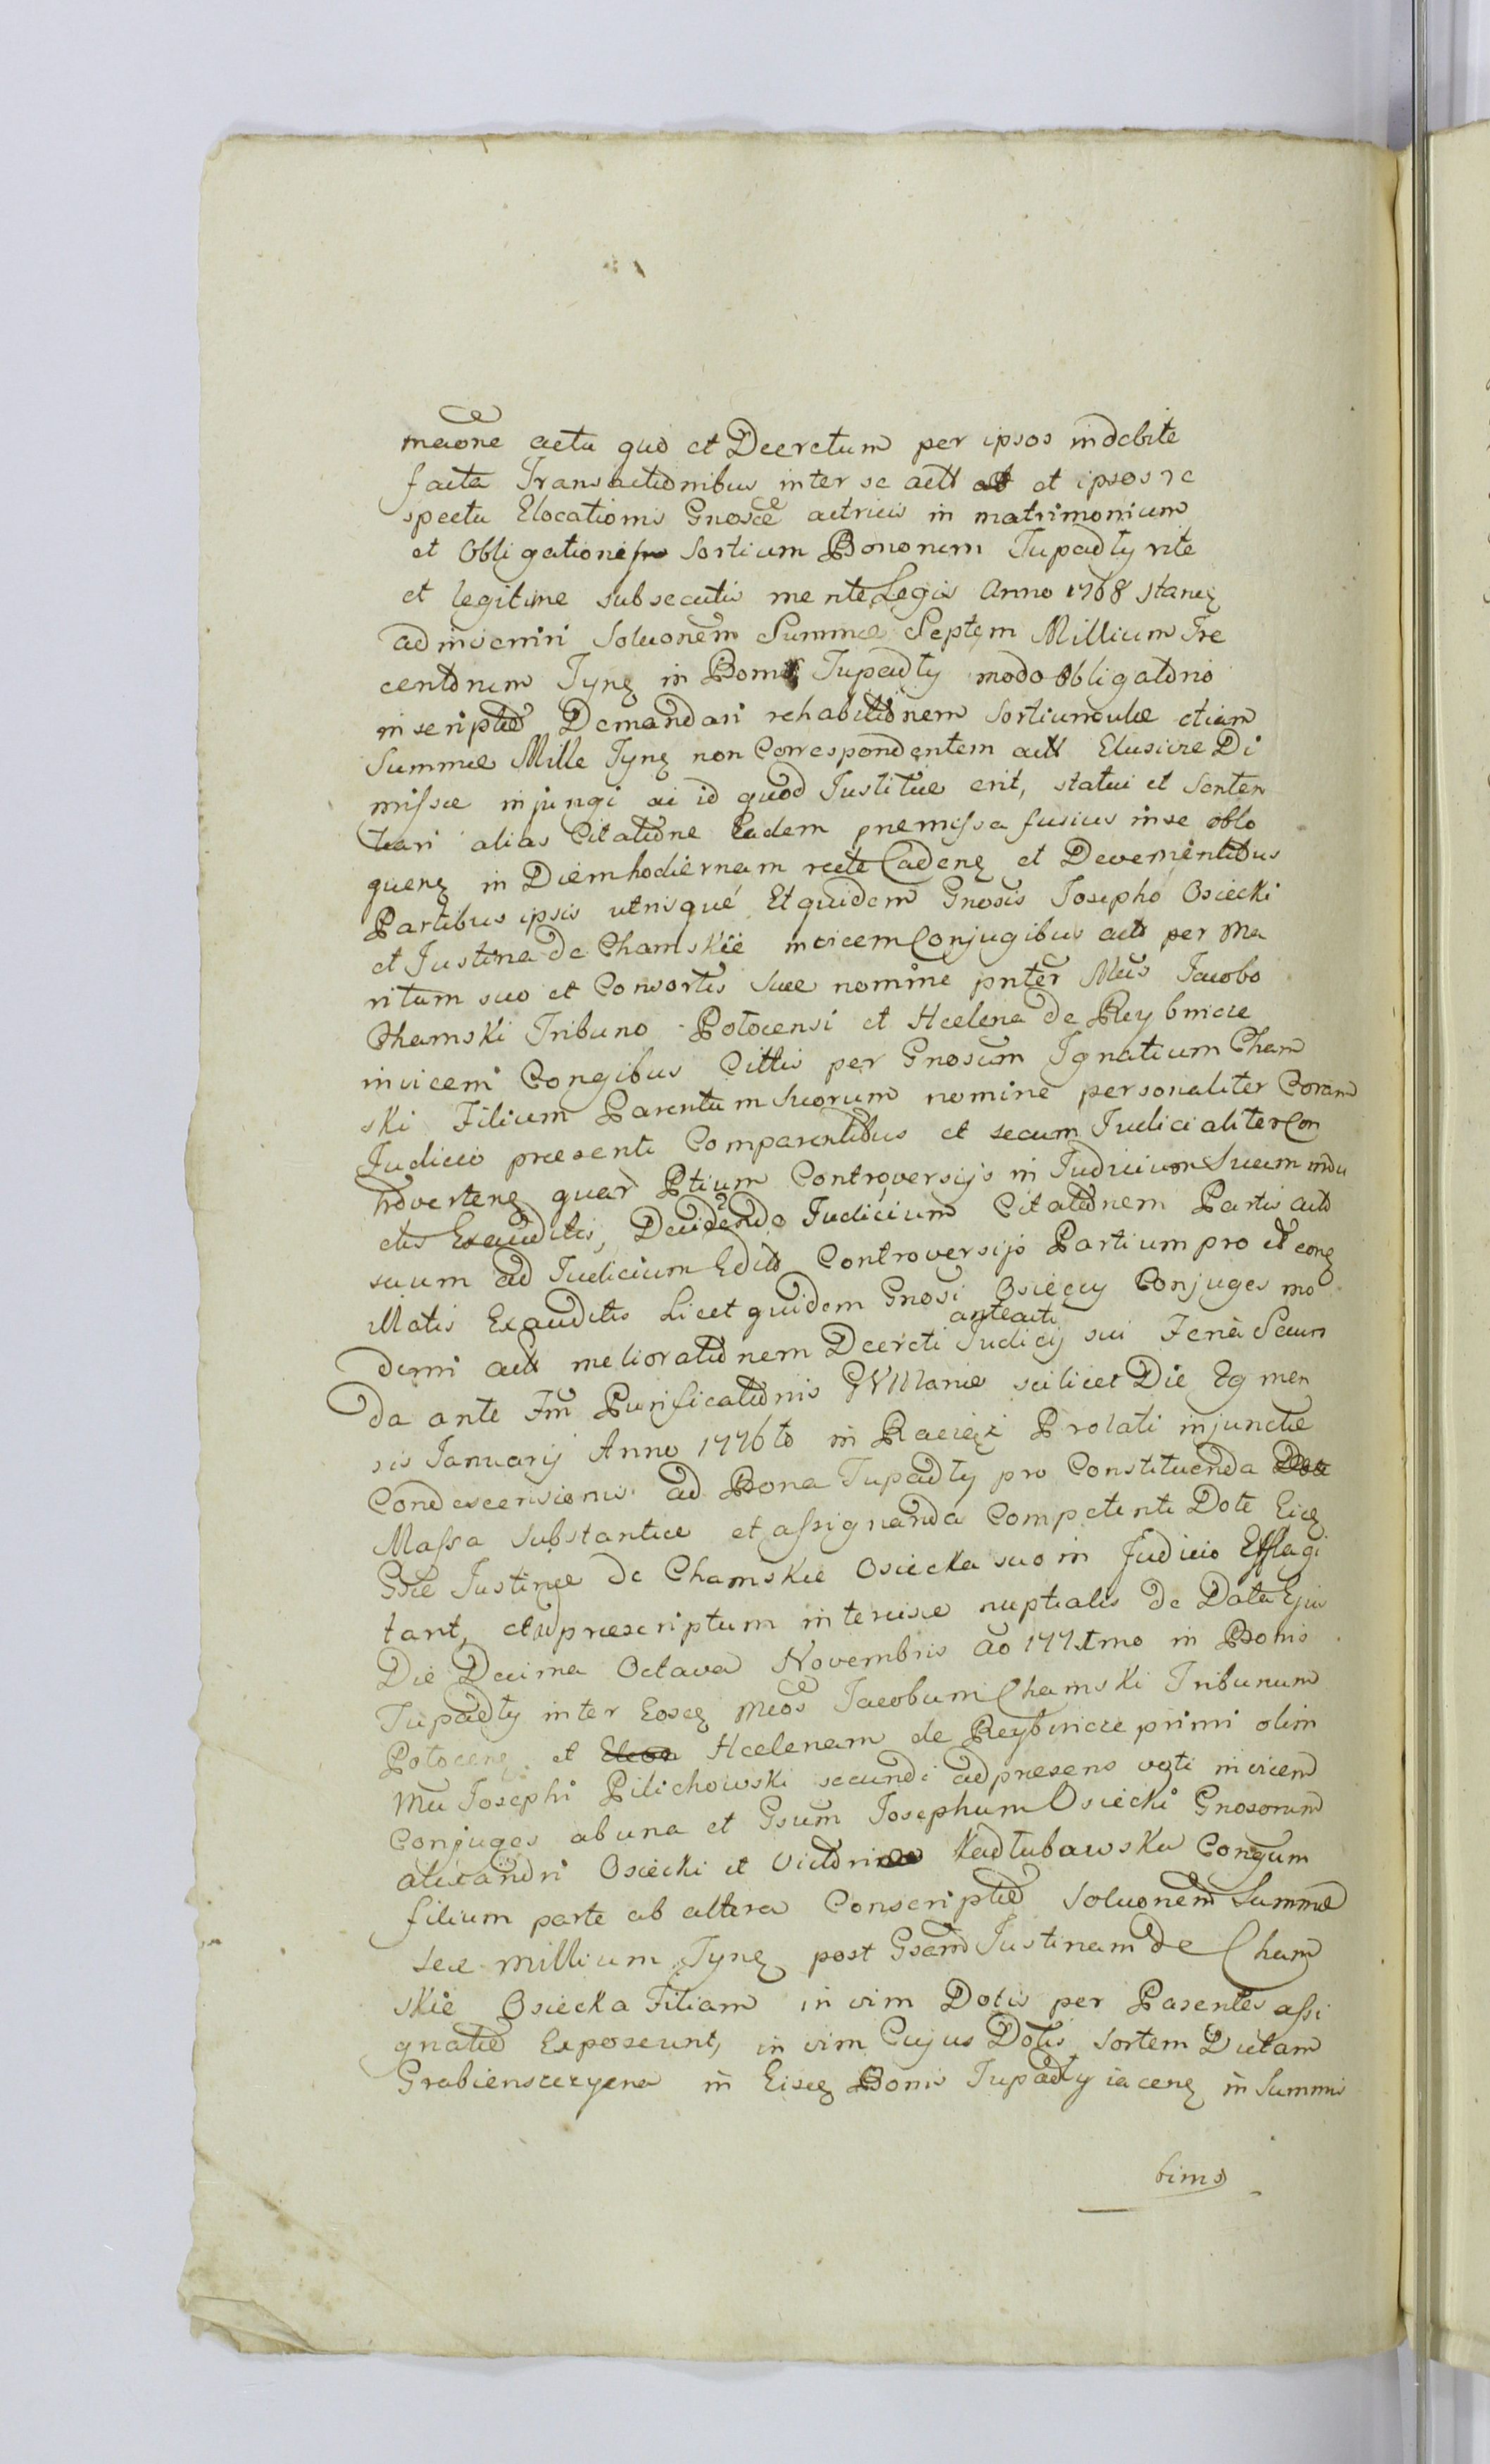 maone acta quo et Decretum per ipsos indebite
facta Transactionibus inter se actt et ipsos re
spectu Elocationis Gnosae actricis in matrimonium
et Obligatione Sortium Bonorum Tupadły rite
et legitime subsecutis mente Legis Anno 1768 stanz
adinveniri Soluonem Summae Septem Millium Tre
centorum Tynz in Bonis Tupadły modo Obligatorio
inscriptae Demandari rehabitionem Sortiumculae etiam
Summae Mille Tynz non Correspondentem actt Elusivae Di
missae injungi ac id quod Justitiae erit, statui et Senten
tiari alias Citatione Eadem praemissa fusius in se oblo
quenz in Diem hodiernam recte Cadenz et Devenientibus
Partibus ipsis utrisque Et quidem Gnosis Josepho Osiecki
et Justina de Chamskie invicem Conjugibus actt per Ma
ritum suo et Consortis Suae nomine pnter Mcis Jacobo
Chamski Tribuno Potocensi et Heelena de Reybnicze
invicem Congibus Cittis per Gnosum Ignatium Cham
ski Filium Parentum Suorum nomine personaliter Coram
Judicio praesenti Comparentibus et secum Judicialiter Con
trovertenz quar Ptium Controversijs in Judicium Suum indu
ctis Exauditis, Decidendo Judicium Citationem Partis act
suum ad Judicium Edit Controversijs Partium pro et conz
illatis Exauditis Licet quidem Gnosi Osieccy Conjuges mo
derni actt meliorationem Decreti anteacti Judicij sui Feria Secun
da ante Fm Purificationis GVMariae scilicet Die 29 men
sis Januarij Anno 1776to in Raciąż Prolati injunctae
Condescensionis ad Bona Tupadły pro Constituenda
Massa Substantiae et assignanda Competenti Dote Eidz
Gsae Justinae de Chamskie Osiecka suo in Judicio Efflagi
tant, et ad praescriptum intercisae nuptialis de Data Ejus
Die Decima Octava Novembris Ao 177tmo in Bonis
Tupadły inter Eosdz Mcos Jacobum Chamski Tribunum
Potocenz et Heelenam de Reybnicze primi olim
Mci Josephi Pilichowski secundi ad praesens voti invicem
Conjuges ab una et Gsum Josephum Osiecki Gnosorum
Alexandri Osiecki et Victoria Kadłubowska Congum
filium parte ab altera Conscriptae Soluonem Summae
sex millium Tynz post Gsam Justinam de Cham
skie Osiecka Filiam in vim Dotis per Parentes assi
gnatae Exposcunt, in vim Cujus Dotis Sortem Dictam
Grabienszczyzna in Eisdz Bonis Tupadły jacenz in Summis
bims